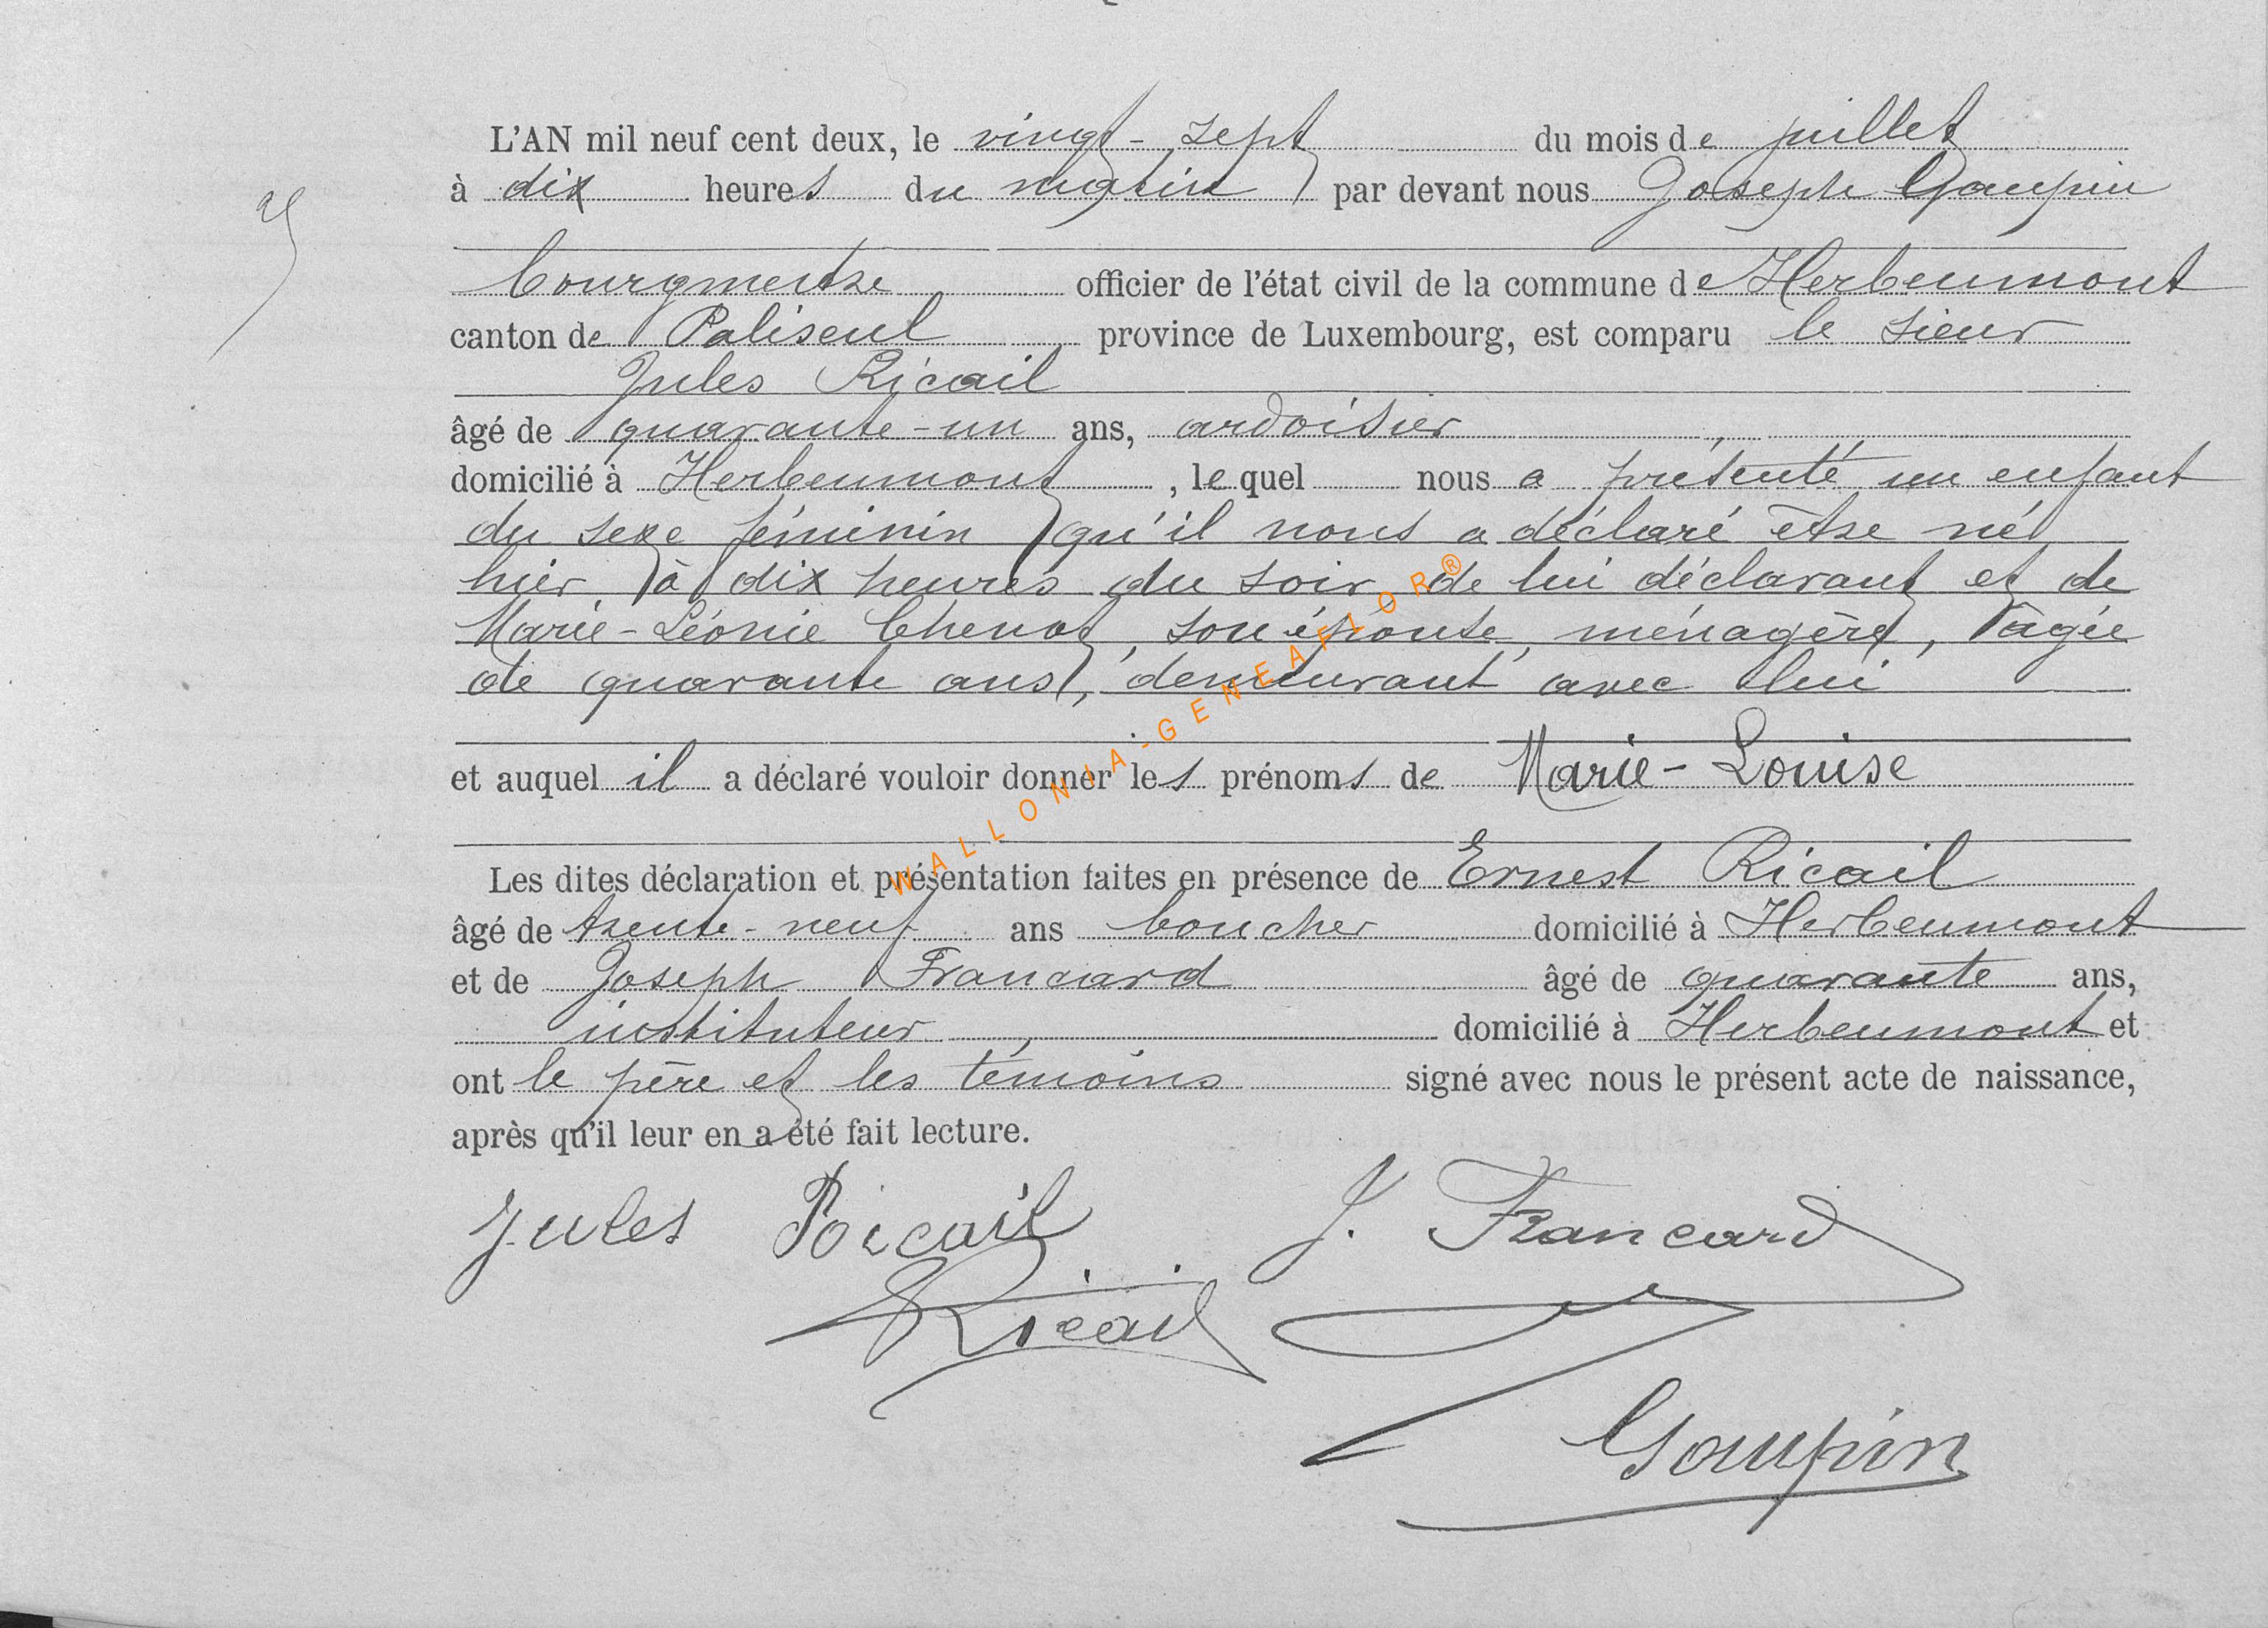 L'AN mil neuf cent deux, le vingt-sept du mois de juillet
à dix heures du matin par devant nous Joseph Goupin
bourgmestre officier de l'état civil de la commune de Herbeumont
canton de Paliseul province de Luxembourg, est comparu le sieur
Jules Ricail
âgé de quarante-un ans, ardoisier,
domicilié à Herbeumont, lequel nous a présenté un enfant
du sexe féminin qu'il nous a déclaré être né
hier, à dix heures du soir, de lui déclarant et de
Marie-Léonie Chenot, son épouse, ménagère, âgée
de quarante ans, demeurant avec lui
et auquel il a déclaré vouloir donner les prénoms de Marie-Louise
Les dites déclaration et présentation faites en présence de Ernest Ricail
âgé de trente-neuf ans boucher domicilié à Herbeumont
et de Joseph Francard âgé de quarante ans,
instituteur, domicilié à Herbeumont et
ont le père et les témoins signé avec nous le présent acte de naissance,
après qu'il leur en a été fait lecture.
Jules Ricail J. Francard
Ricail
Goupin
WALLONIA-GENEAFLOR®